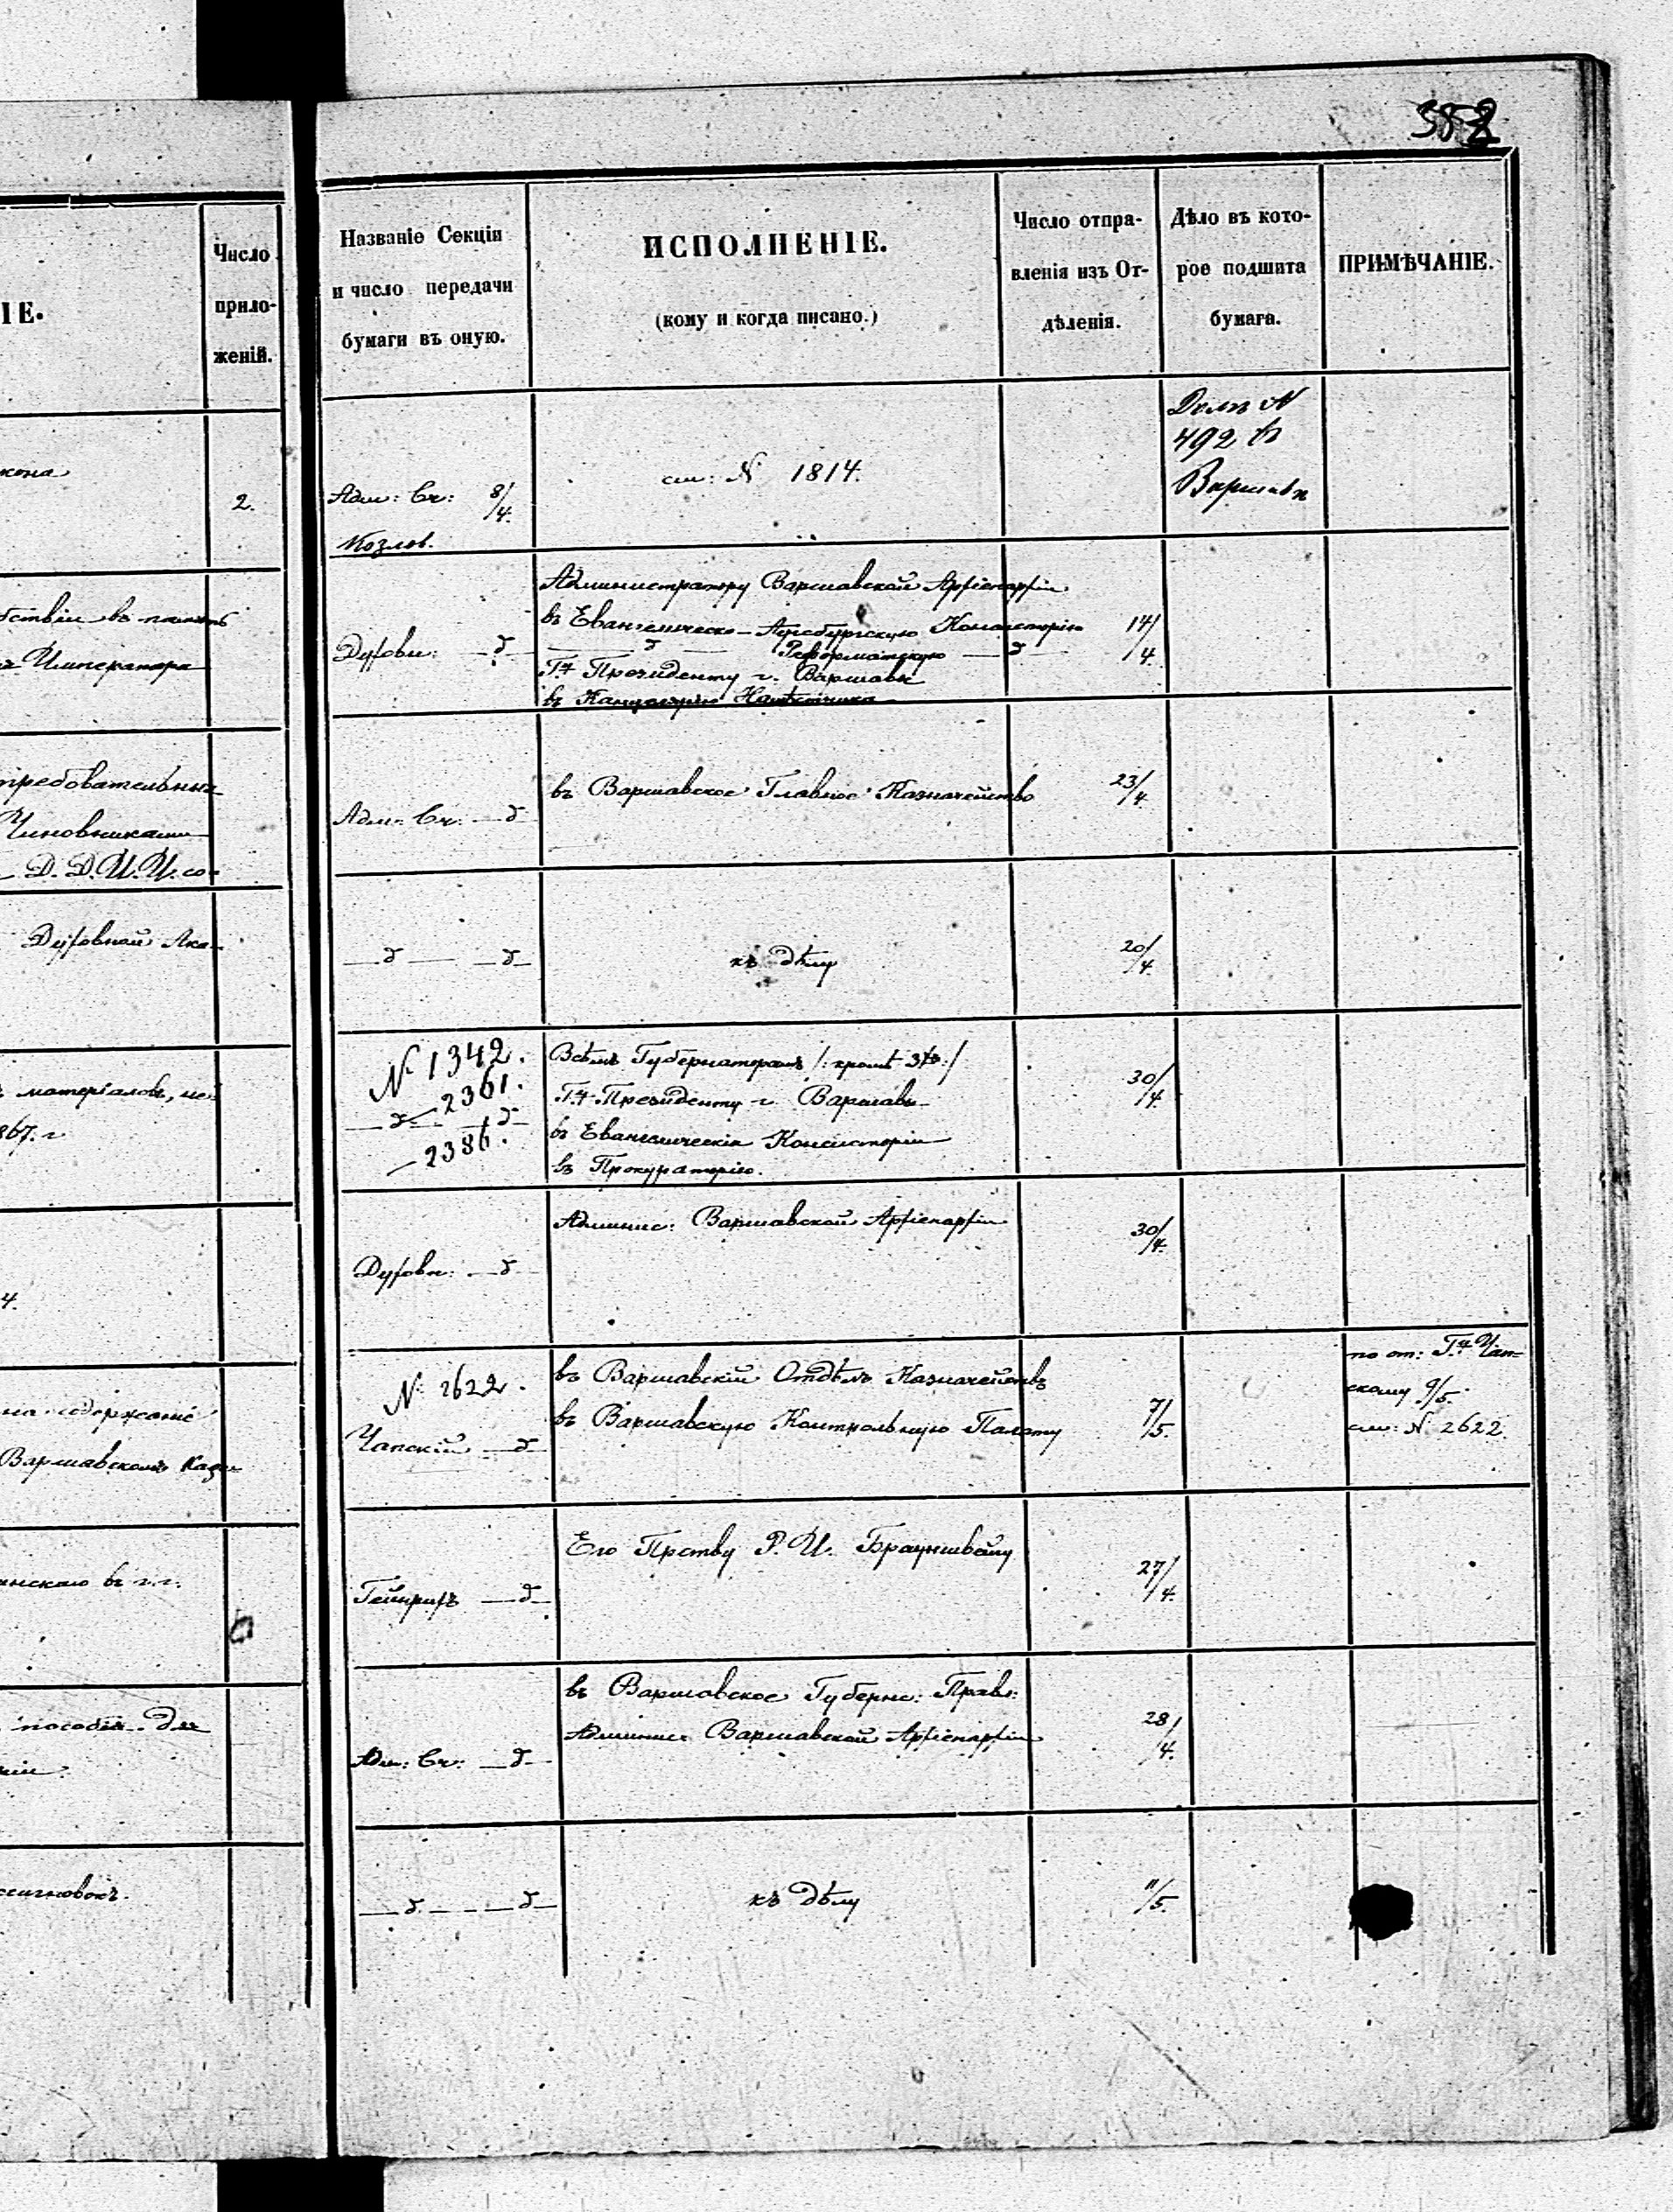 382
ІЕ.
Число
прило-
женій.
Названіе Секціи
и число передачи
бумаги въ оную.
ИСПОЛНЕНІЕ.
(кому и когда писано.)
Число отпра-
вленія изъ От-
дѣленія.
Дѣло въ кото-
рое подшита
бумага.
ПРИМѢЧАНІЕ.
кона
2.
Адм: Сч: 8/4.
Козлов.
см: № 1814.
Домъ №
492 в
Варшавѣ
Императора
Духовн: — д —
Администратору Варшавской Архіепархіи
въ Евангелическо-Аугсбургскую Консисторію
— д — Реформатскую — д —
Г-ну Президенту г. Варшавы
въ Канцелярію Намѣстника
14/4.
требовательных
Чиновниками
Д. Д. И. И. со-
Адм: Сч: — д
въ Варшавское Главное Казначейство
23/4.
Духовной Ака-
— д — — д —
къ дѣлу
20/4.
матеріаловъ, не
867. г.
№ 1342.
— 2361.
— д — — д —
— 2386.
Всѣмъ Губернаторамъ /: кромѣ :/
Г-ну Президенту г. Варшавы
въ Евангелическія Консисторіи
въ Прокураторію.
30/4.
4.
Духовн: — д —
Админис: Варшавской Архіепархіи
30/4.
на содержаніе
Варшавскомъ Казн
№ 2622.
Чапскій — д —
въ Варшавскій Отдѣлъ Казначействъ
въ Варшавскую Контрольную Палату
7/5.
по от: Г-ну Чап-
скому 9/5.
см: № 2622.
инскаго въ г.г.
Гейнрихъ — д —
Его Прству Р. И. Брауншвейгу
27/4.
пособія для
ніи.
Адм: Сч: — д —
въ Варшавское Губернс: Правл:
Админис: Варшавской Архіепархіи
28/4.
ссигновокъ.
— д — — д —
къ дѣлу
11/5.